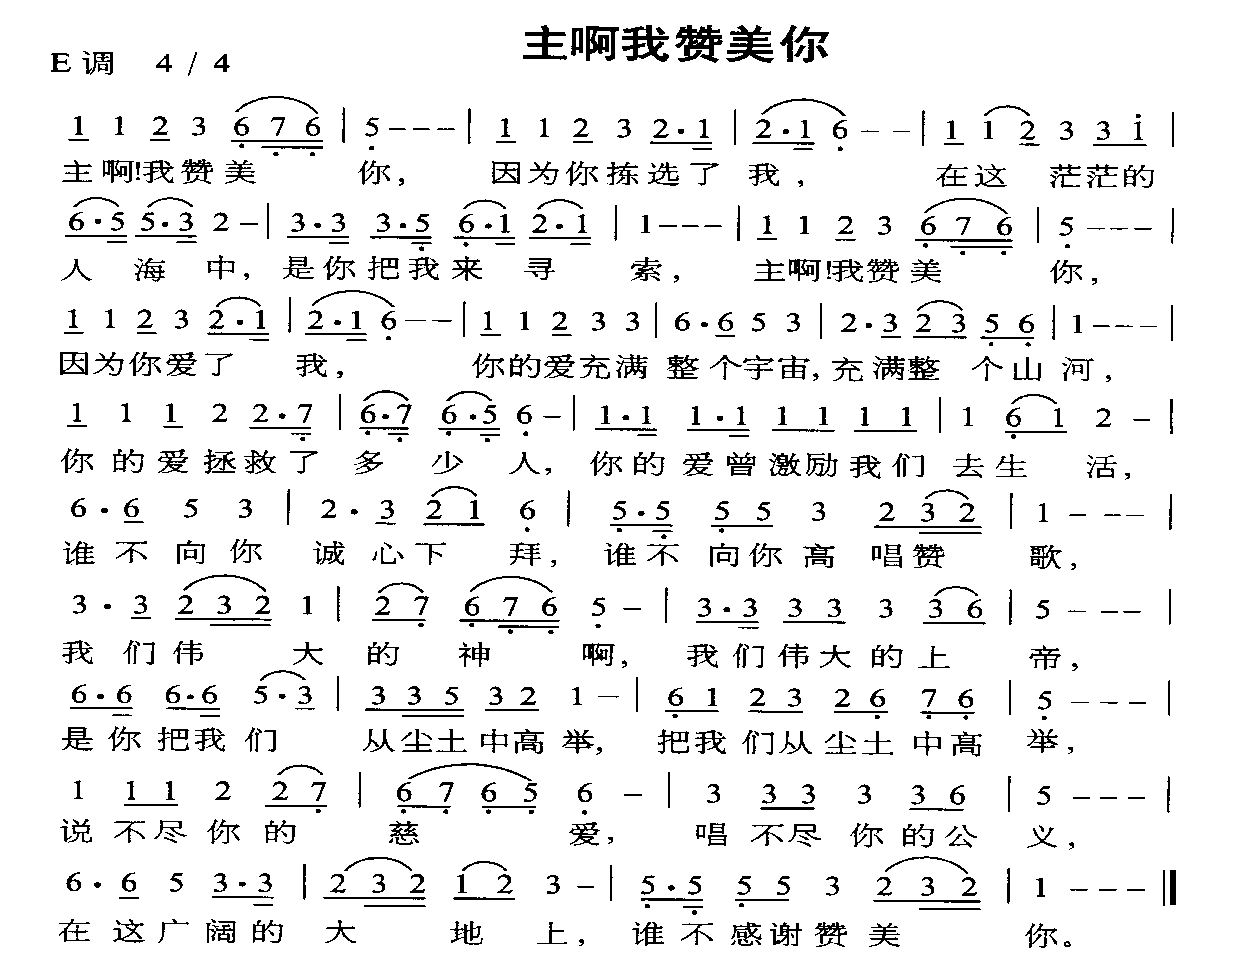 主啊我赞美你
E调 4 / 4
1 1 2 3 6 7 6 | 5 - - - | 1 1 2 3 2 · 1 | 2 · 1 6 - - | 1 1 2 3 3 i |
主啊!我赞美 你, 因为你拣选了 我, 在这 茫茫的
6 · 5 5 · 3 2 - | 3 · 3 3 · 5 6 · 1 2 · 1 | 1 - - - | 1 1 2 3 6 7 6 | 5 - - - |
人 海 中, 是你把我来 寻 索, 主啊!我赞美 你,
1 1 2 3 2 · 1 | 2 · 1 6 - - | 1 1 2 3 3 | 6 · 6 5 3 | 2 · 3 2 3 5 6 | 1 - - - |
因为你爱了 我, 你的爱充满 整个宇宙, 充满整 个山河,
1 1 1 2 2 · 7 | 6 · 7 6 · 5 6 - | 1 · 1 1 · 1 1 1 1 1 | 1 6 1 2 - |
你的爱拯救了 多 少 人, 你的爱曾激励我们 去生 活,
6 · 6 5 3 | 2 · 3 2 1 6 | 5 · 5 5 5 3 2 3 2 | 1 - - - |
谁不向你 诚心下 拜, 谁不向你高 唱赞 歌,
3 · 3 2 3 2 1 | 2 7 6 7 6 5 - | 3 · 3 3 3 3 3 6 | 5 - - - |
我们伟 大 的 神 啊, 我们伟大的上 帝,
6 · 6 6 · 6 5 · 3 | 3 3 5 3 2 1 - | 6 1 2 3 2 6 7 6 | 5 - - - |
是你把我们 从尘土中高举, 把我们从尘土中高 举,
1 1 1 2 2 7 | 6 7 6 5 6 - | 3 3 3 3 3 6 | 5 - - - |
说不尽你的 慈 爱, 唱不尽你的公 义,
6 · 6 5 3 · 3 | 2 3 2 1 2 3 - | 5 · 5 5 5 3 2 3 2 | 1 - - - ‖
在这广阔的 大 地 上, 谁不感谢赞美 你。